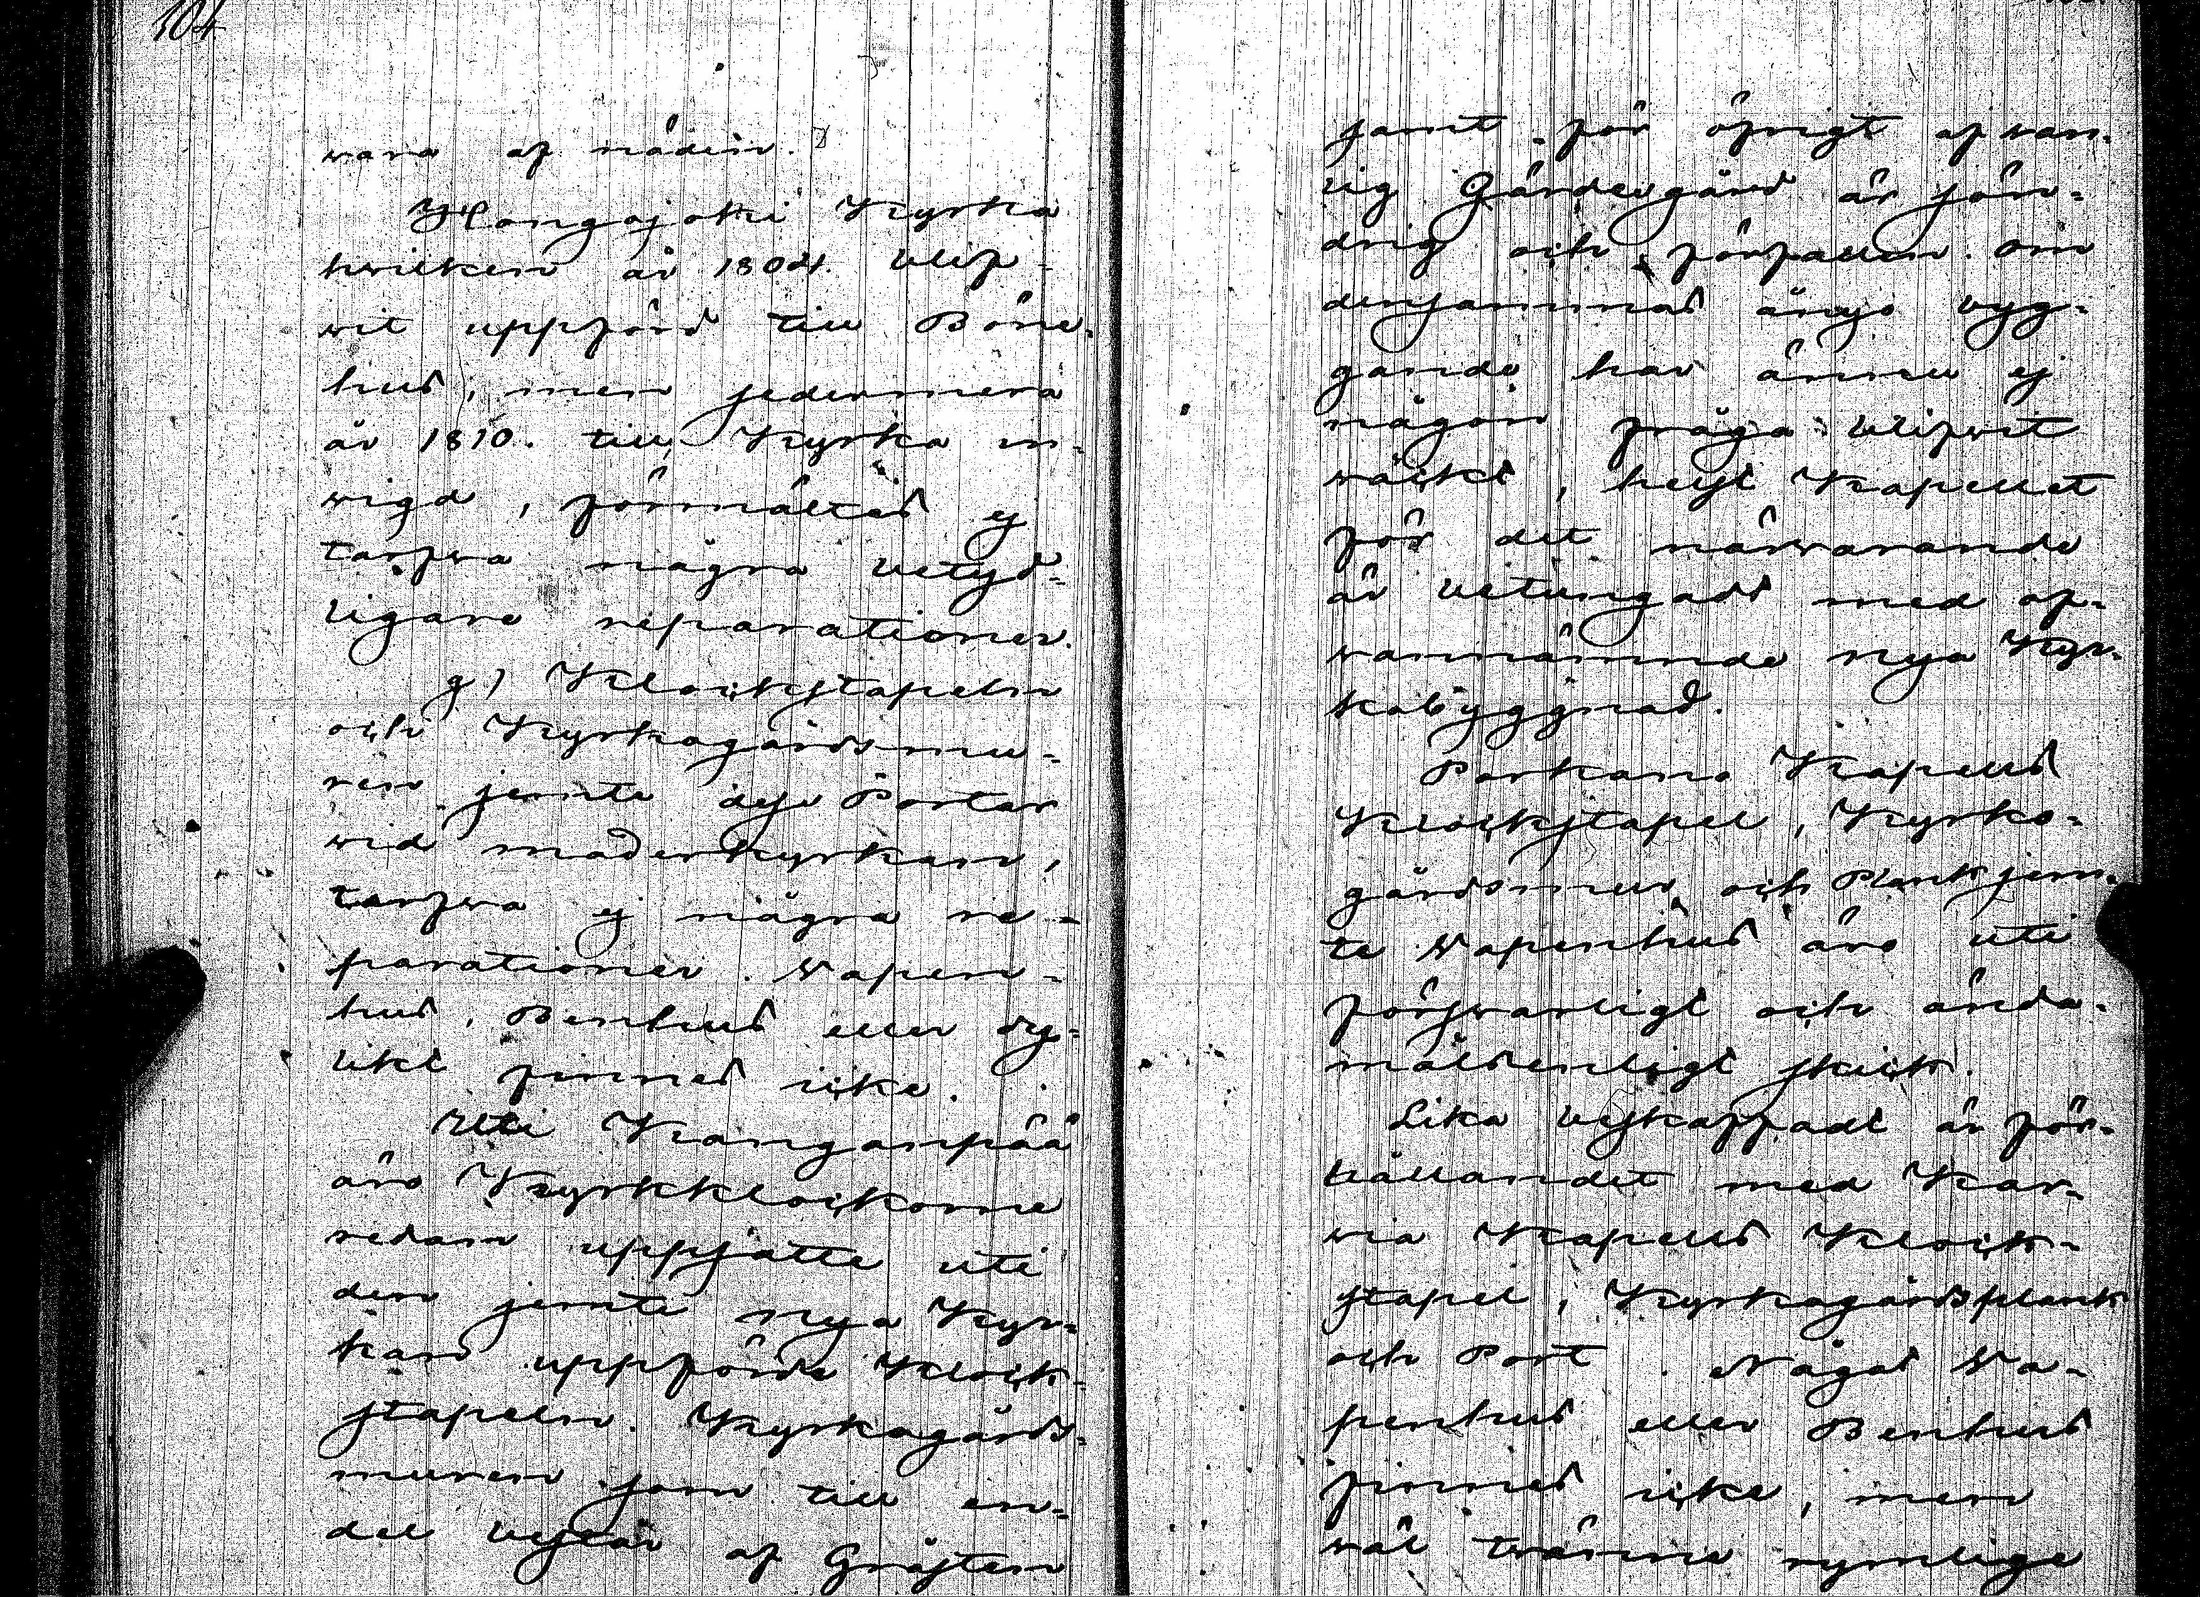 104
wara af nöden.
Hongojoki Kyrka
hwilken år 1804. blif-
wit uppförd till Böne-
hus, men sedermera
år 1810. till Kyrka in-
wigd, förmältes ej
tarfwa några betyd-
ligare reparationer.
g) Klockstapeln
och Kyrkogårdsmu-
ren jemte dess Portar
wid moderkyrkan,
tarfwa ej några re-
parationer. Wapen-
hus, Benhus eller dy-
likt finnes icke.
Uti Kanganpää
äro Kyrkklockorne
redan uppsatte uti
den jemte nya Kyr-
kan uppförde Klock-
stapeln. Kyrkogårds-
muren som till en-
del består af Gråsten
samt för öfrigt af wan-
lig Gärdesgård är sön-
drig och förfallen. om
densammas ånyo byg-
gande har ännu ej
någon fråga blifwit
wäckt, helst Kapellet
för det närwarande
är betungadt med of-
wannämnde nya Kyr-
kobyggnad.
Parkano Kapells
Klockstapel, Kyrko-
gårdsmur och Plank jem-
te Wapenhus äro uti
förswarligt och ända-
målsenligt skick.
Lika beskaffadt är för-
hållandet med Kar-
via Kapells Klock-
stapel, Kyrkogårdsplank
och Port. Något Wa-
penhus eller Benhus
finnes icke, men
wäl twänne rymlige